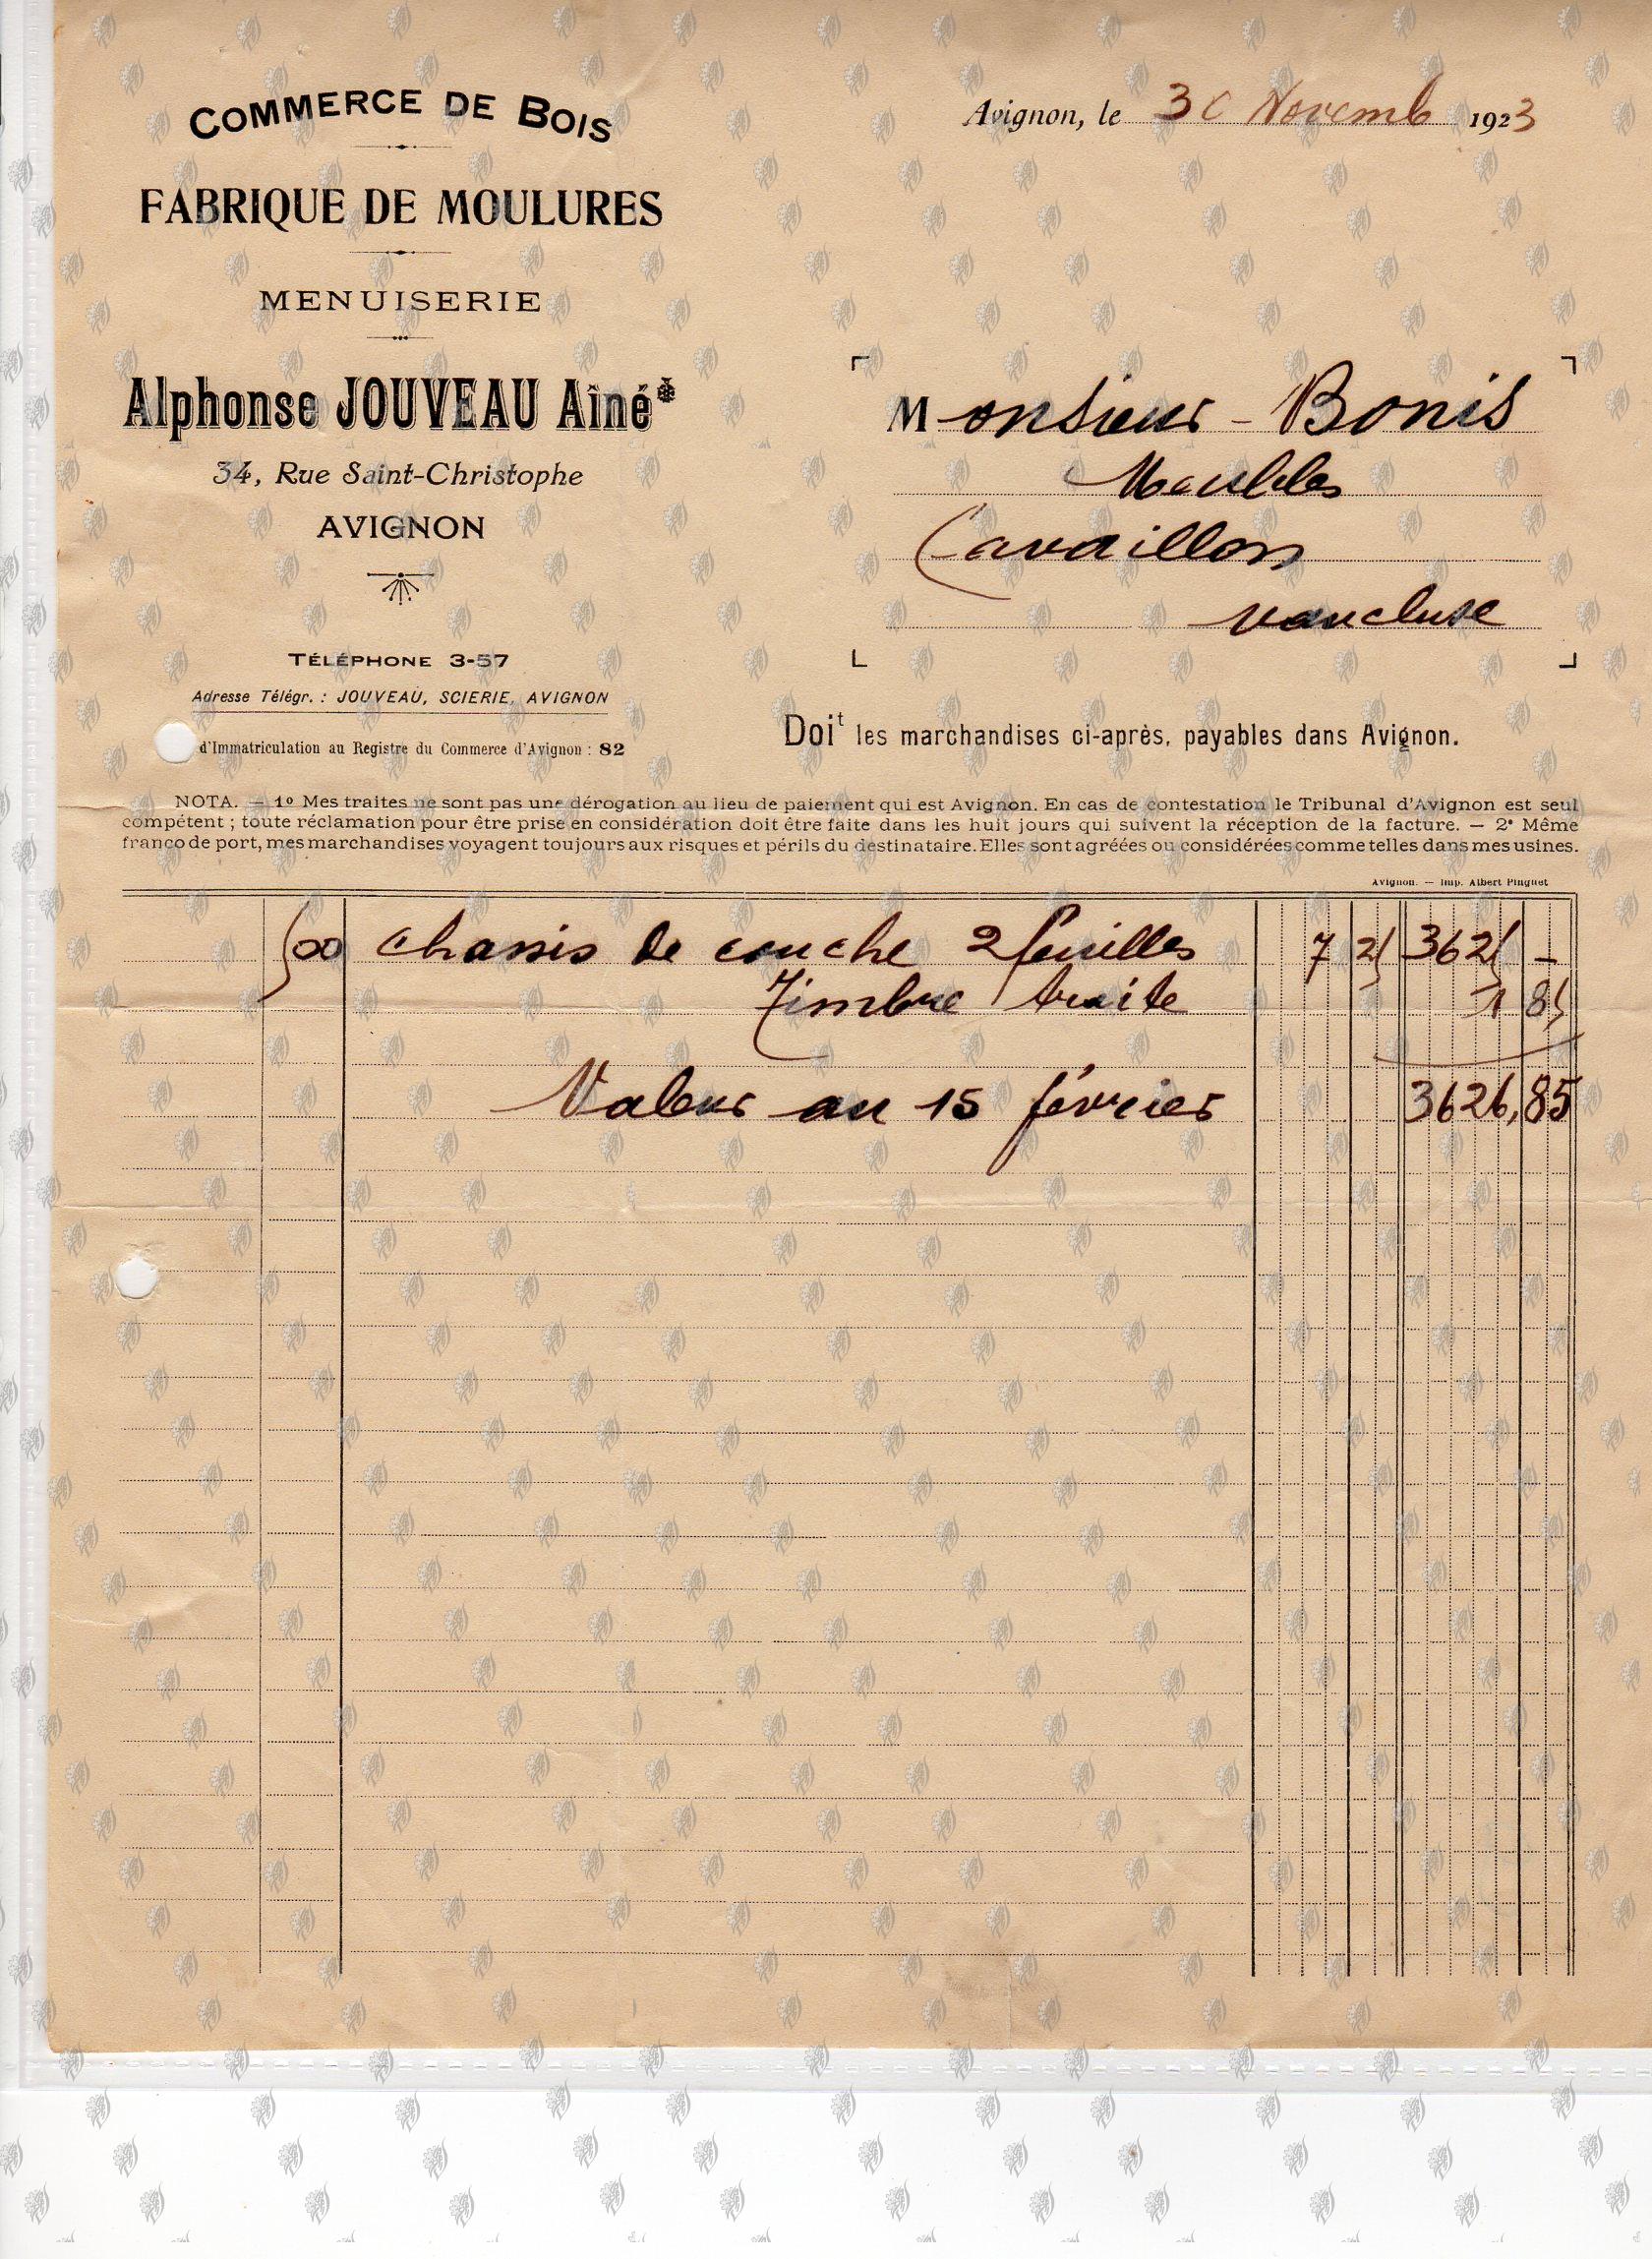 COMMERCE DE BOIS
FABRIQUE DE MOULURES
MENUISERIE
Alphonse JOUVEAU Aîné
34, Rue Saint-Christophe
AVIGNON
TÉLÉPHONE 3-57
Adresse Télégr. : JOUVEAU, SCIERIE, AVIGNON
d'Immatriculation au Registre du Commerce d'Avignon : 82
Avignon, le 30 Novemb 1923
Monsieur - Bonis
Meubles
Cavaillon
Vaucluse
Doit les marchandises ci-après, payables dans Avignon.
NOTA. — 1º Mes traites ne sont pas une dérogation au lieu de paiement qui est Avignon. En cas de contestation le Tribunal d'Avignon est seul
compétent ; toute réclamation pour être prise en considération doit être faite dans les huit jours qui suivent la réception de la facture. — 2º Même
franco de port, mes marchandises voyagent toujours aux risques et périls du destinataire. Elles sont agréées ou considérées comme telles dans mes usines.
Avignon. — Imp. Albert Pinguet
500 chassis de couche 2 feuilles 7 25 3625 -
Timbre traite 1 85
Valeur au 15 février 3626,85